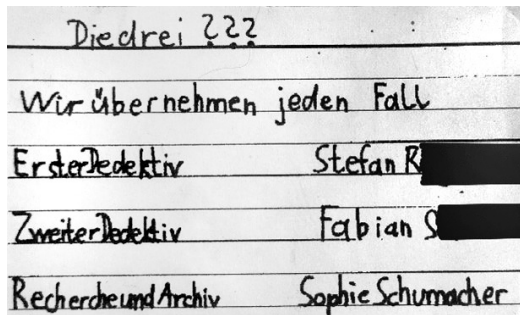 Die drei ???
Wir übernehmen jeden Fall
Erster Dedektiv Stefan R
Zweiter Dedektiv Fabian S
Recherche und Archiv Sophie Schumacher